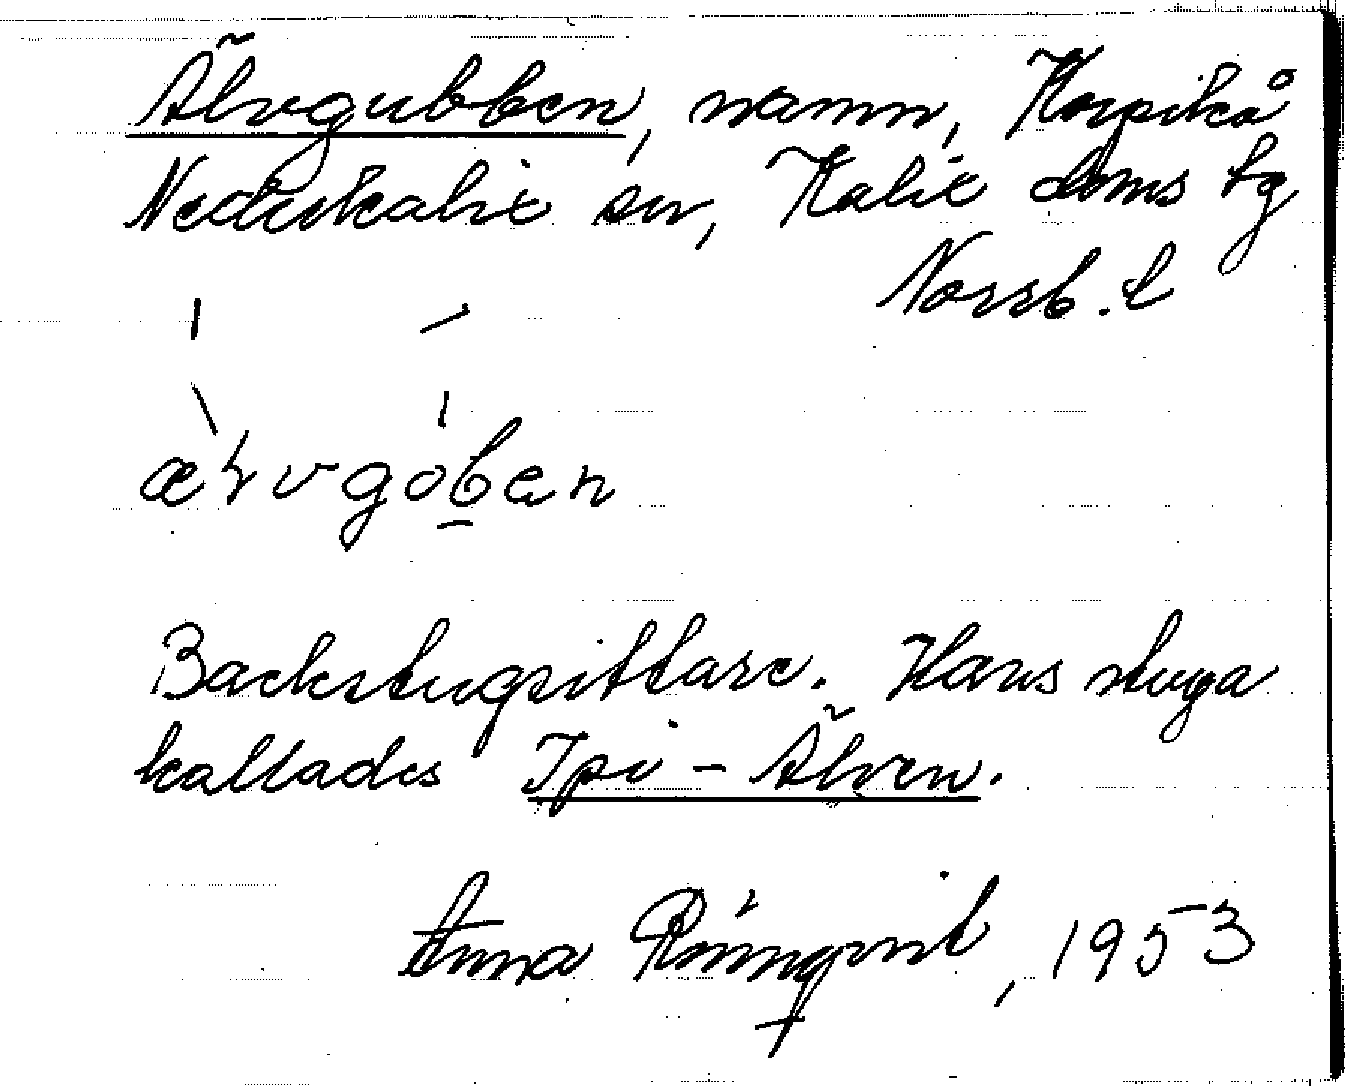 Älvgubben, namn, Korpikå
Nederkalix sn, Kalix doms tg
Norrb. l
ælvgoben
Backstugsittare. Hans stuga
kallades Ipi-Älven.
Anna Rönnqvist, 1953